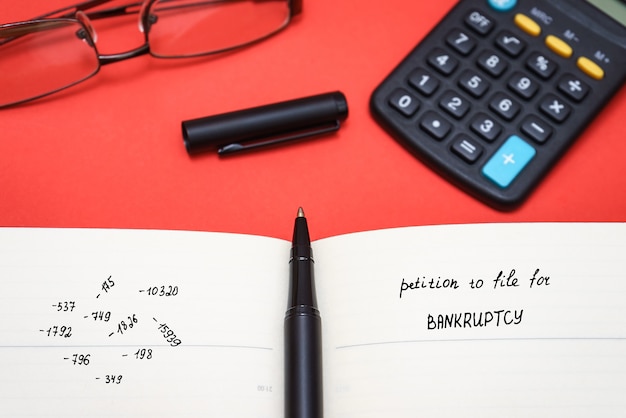 OFF
MRC
M-
M+
√
%
÷
7
8
9
×
4
5
6
-
1
2
3
+
0
.
=
petition to file for
BANKRUPTCY
-175
-10320
-537
-749
-1826
-15939
-1792
-796
-198
-349